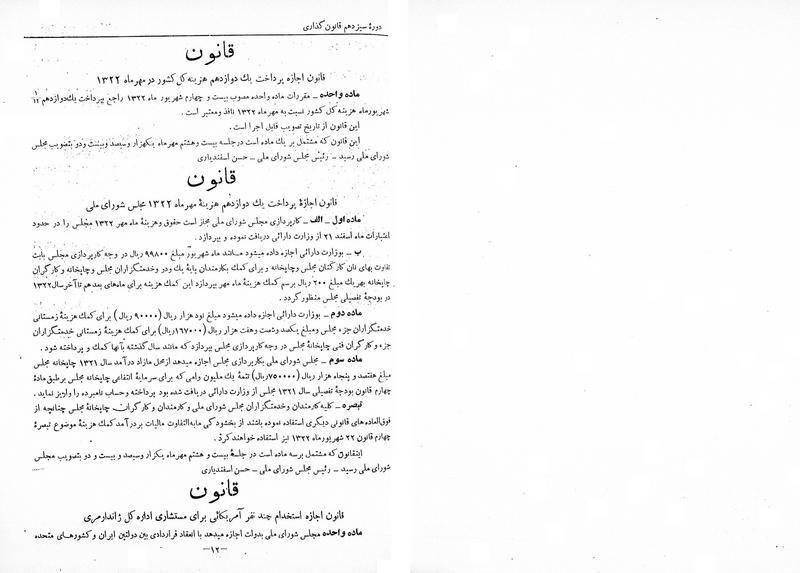 دورهٔ سیزدهم قانون گذاری
قانون
قانون اجازه پرداخت یك دوازدهم هزینه کل کشور در مهر ماه ۱۳۲۲
ماده واحده ـ مقررات ماده واحده مصوب بیست و چهارم شهریور ماه ۱۳۲۲ راجع بپرداخت یك‌دوازدهم ۱/۱۲
شهریورماه هزینه کل کشور نسبت به مهر ماه ۱۳۲۲ نافذ ومعتبر است .
این قانون از تاریخ تصویب قابل اجرا است .
این قانون که مشتمل بر یك ماده است درجلسه بیست وهشتم مهرماه یکهزار وسیصد وبیست ودو بتصویب مجلس
شورای ملی رسید ـ رئیس مجلس شورای ملی ـ حسن اسفندیاری
قانون
قانون اجازهٔ پرداخت یك دوازدهم هزینهٔ مهر ماه ۱۳۲۲ مجلس شورای ملی
ماده اول ـ الف ـ کارپردازی مجلس شورای ملی مجاز است حقوق وهزینهٔ ماه مهر ۱۳۲۲ مجلس را در حدود
اعتبارات ماه اسفند ۲۱ از وزارت دارائی دریافت نموده و بپردازد .
ب ـ بوزارت دارائی اجازه داده میشود مانند ماه شهریور مبلغ ۹۹۸۰۰ ریال در وجه کارپردازی مجلس بابت
تفاوت بهای نان کارکنان مجلس وچاپخانه و برای کمك بکارمندان پایهٔ یك ودو وخدمتگزاران مجلس وچاپخانه و کارگران
چاپخانه بهریك مبلغ ۲۰۰ ریال برسم کمك هزینهٔ ماه مهر بپردازد این کمك هزینه برای ماه‌های بعد هم تا آخر سال ۱۳۲۲
در بودجهٔ تفصیلی مجلس منظور گردد .
ماده دوم ـ بوزارت دارائی اجازه داده میشود مبلغ نود هزار ریال (۹۰۰۰۰ ریال) برای کمك هزینهٔ زمستانی
خدمتگزاران جزء مجلس ومبلغ یکصد وشصت وهفت هزار ریال (۱۶۷۰۰۰ریال) برای کمك هزینهٔ زمستانی خدمتگزاران
جزء و کارگران فنی چاپخانهٔ مجلس در وجه کارپردازی مجلس بپردازد که مانند سال گذشته بآنها کمك و پرداخته شود .
ماده سوم ـ مجلس شورای ملی بکارپردازی مجلس اجازه میدهد ازمحل مازاد درآمد سال ۱۳۲۱ چاپخانه مجلس
مبلغ هفتصد و پنجاه هزار ریال (۷۵۰۰۰۰ریال) تتمهٔ یك ملیون وامی که برای سرمایهٔ انتفاعی چاپخانه مجلس برطبق مادهٔ
چهارم قانون بودجهٔ تفصیلی سال ۱۳۲۱ مجلس از وزارت دارائی دریافت شده بود پرداخته وحساب نامبرده را واریز نماید .
تبصره ـ کلیه کارمندان وخدمتگزاران مجلس شورای ملی و کارمندان و کارگران چاپخانهٔ مجلس چنانچه از
فوق‌العاده‌های قانونی دیگری استفاده نموده باشند از بخشودگی مابه‌التفاوت مالیات بر درآمد کمك هزینهٔ موضوع تبصرهٔ
چهارم قانون ۲۲ شهریور ماه ۱۳۲۲ نیز استفاده خواهند کرد .
اینقانون که مشتمل برسه ماده است در جلسهٔ بیست و هشتم مهرماه یکهزار وسیصد و بیست و دو بتصویب مجلس
شورای ملی رسید ـ رئیس مجلس شورای ملی ـ حسن اسفندیاری
قانون
قانون اجازه استخدام چند نفر آمریکائی برای مستشاری اداره کل ژاندارمری
ماده واحده مجلس شورای ملی بدولت اجازه میدهد با انعقاد قراردادی بین دولتین ایران و کشورهای متحده
ـ۱۲ـ